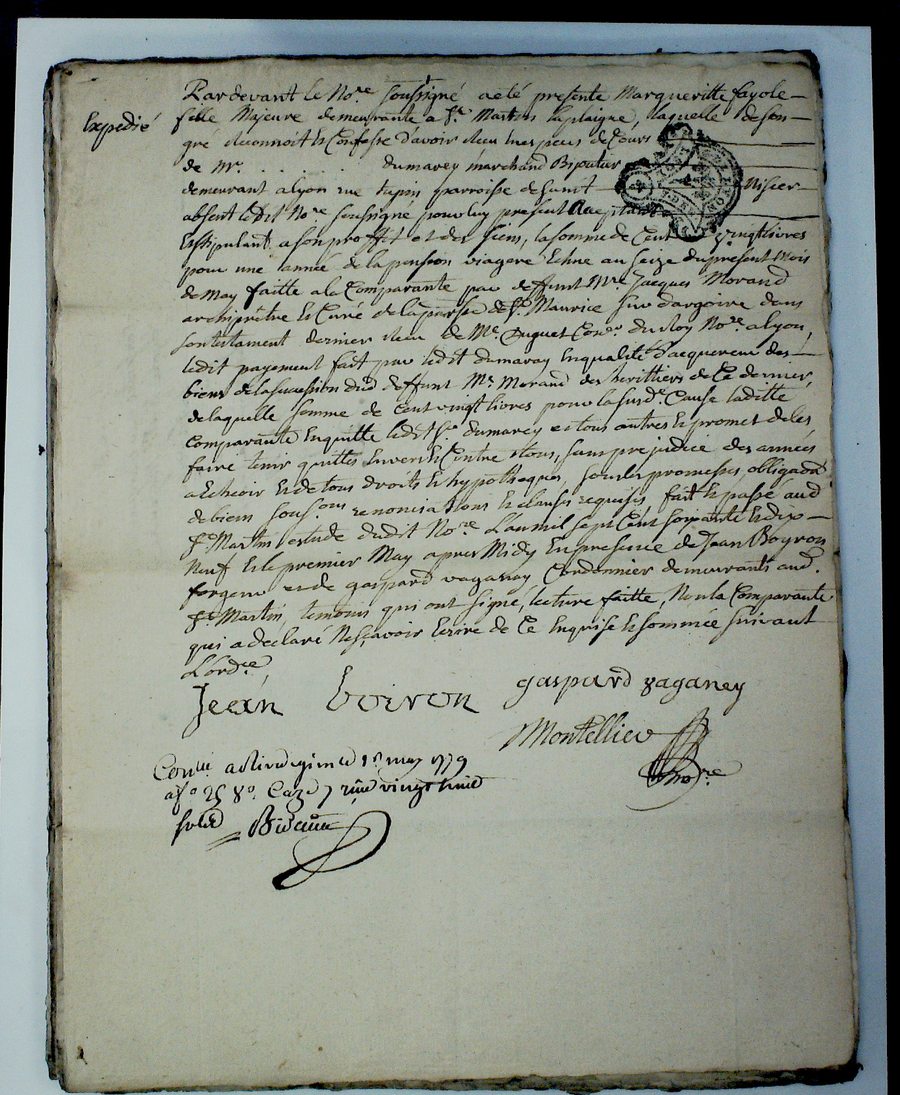 Expedié
Pardevant le No.re soussigné a eté presente Margueritte fayole
fille Majeure demeurante a St. Martin laplaigne, laquelle de son
gré Reconnoit et Confesse d'avoir Receu en especes de Cours
de Mr. dumarey marchand Bijoutier
demeurant a lyon rue lupin parroisse de Saint Nisier
absent ledit No.re soussigné pour luy present acceptant
Et stipulant a son proffit et des siens, la somme de Cent vingt livres
pour une année de la pension viagere Echue au seize du present Mois
de May faitte a la Comparante par deffunt Mre Jacques Morand
archiprêtre et Curé de la parsse de St. Maurice sur dargoire dans
son testament dernier Receu de Me. Duguet Con.er du Roy No.re a lyon,
ledit payement fait par ledit dumarey En qualité d'acquereur des
biens de la succession dud. deffunt Mr. Morand des heritiers de Ce dernier,
de laquelle somme de Cent vingt livres pour la susd.e Cause laditte
Comparante En quitte ledit Sr. dumarey et tous autres et promet de les
faire tenir quittes Envers et Contre tous, sans prejudice des années
a Echeoir et de tous droits et hypotheques, sous les promesses obligaon
de biens sousons renonciations et clauses requises fait et passé aud.
St. Martin Estude dudit No.re L'an mil sept Cent soixante et dix
neuf et le premier May apres Midy En presence de Jean Boyron
forgeur et de gaspard vaganay Cordonnier demeurants aud.
St. Martin, temoins qui ont signé, lecture faitte, Non la Comparante
qui a declaré Ne sçavoir Ecrire de Ce Enquise et sommée suivant
L'ord.ce
Jeán boiron gaspard vaganey
Montellier
no.re
Con.lé a Rivedegier le 1er may 1779
a fo. 25 Vo. Caze 7 vingt huit
sols